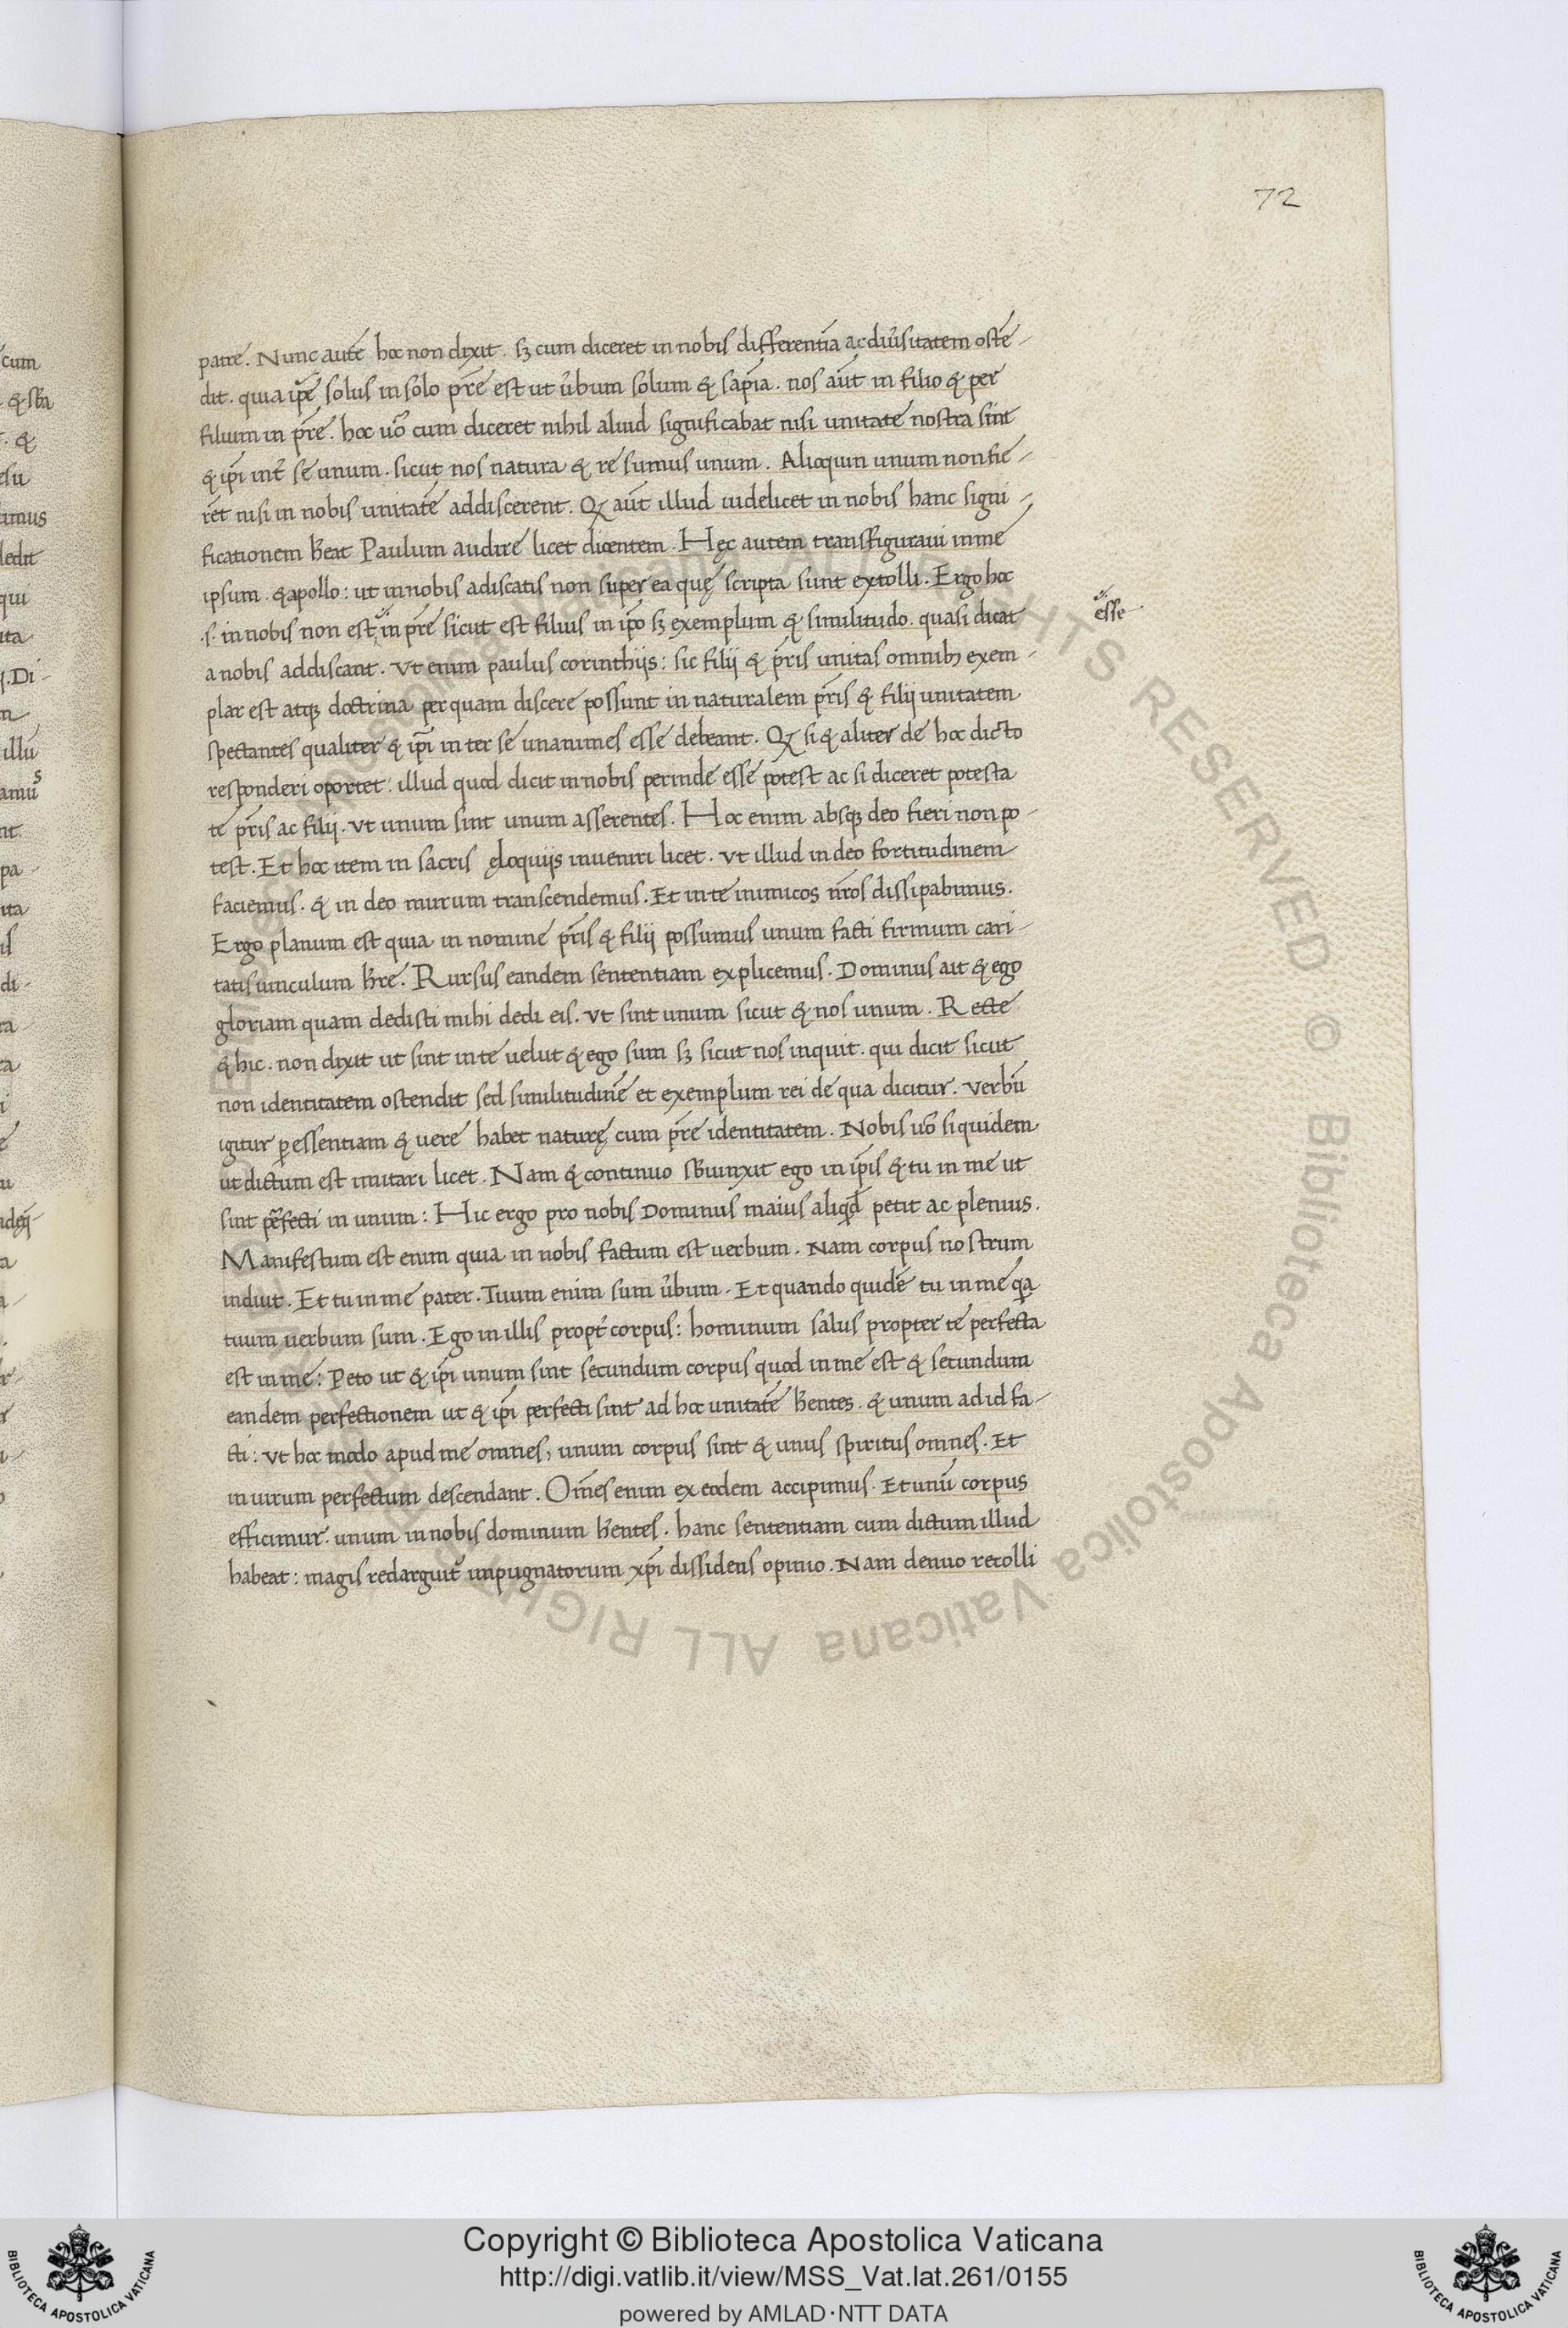 72
patre. Nunc autē hoc non dixit. sꝫ cum diceret in nobis differentiā ac diũsitatem ostē-
dit. quia ip̃e solus in solo p̃re est ut ũbum solum & sapi̅a. nos aũt in filio & per
filium in p̃re. hoc uõ cum diceret nihil aliud significabat nisi unitate nostra sint
& ip̃i int̃ se unum. sicut nos natura & re sumus unum. Alioquin unum non fie-
rẽt nisi in nobis unitatē addiscerent. Qꝫ aũt illud uidelicet in nobis hanc signi-
ficationem h̃eat Paulum audire licet dicentem. Hęc autem transfiguraui in me
ipsum. & apollo: ut in nobis adiscatis non super ea quę scripta sunt extolli. Ergo hoc
.s. in nobis non est in p̃re sicut est filius in ip̃o sꝫ exemplum & similitudo. quasi dicat
esse
a nobis addiscant. Vt enim paulus corinthijs: sic filij & p̃ris unitas omnibꝫ exem-
plar est atqꝫ doctrina per quam discere possunt in naturalem p̃ris & filij unitatem
spectantes qualiter & ip̃i in ter se unanimes esse debeant. Qꝫ si & aliter de hoc dicto
responderi oportet: illud quod dicit in nobis perinde esse potest ac si diceret potesta
te p̃ris ac filij. Vt unum sint unum asserentes. Hoc enim absqꝫ deo fieri non po-
test. Et hoc item in sacris ęloquijs inueniri licet. Vt illud in deo fortitudinem
faciemus. & in deo murum transcendemus. Et in te inimicos nr̃os dissipabimus.
Ergo planum est quia in nomine p̃ris & filij possumus unum facti firmum cari-
tatis uinculum h̃re. Rursus eandem sententiam explicemus. Dominus ait & ego
gloriam quam dedisti mihi dedi eis. Vt sint unum sicut & nos unum. Recte
& hic. non dixit ut sint in te uelut & ego sum sꝫ sicut nos inquit. qui dicit sicut
non identitatem ostendit sed similitudinē et exemplum rei de qua dicitur. Verbū
igitur ꝑ essentiam & uere habet naturę cum p̃re identitatem. Nobis uõ siquidem
ut dictum est imitari licet. Nam & continuo sb̃iunxit ego in ip̃is & tu in me ut
sint pẽrfecti in unum: Hic ergo pro nobis Dominus maius aliqd̃ petit ac plenius.
Manifestum est enim quia in nobis factum est uerbum. Nam corpus nostrum
induit. Et tu in me pater. Tuum enim sum ũbum. Et quando quidē tu in me qa
tuum uerbum sum. Ego in illis propt̃ corpus: hominum salus propter te perfecta
est in me: Peto ut & ip̃i unum sint secundum corpus quod in me est & secundum
eandem perfectionem ut & ip̃i perfecti sint ad hoc unitatē h̃entes. & unum ad id fa-
cti: Vt hoc modo apud me omnes, unum corpus sint & unus spiritus omnes. Et
in uirum perfectum descendant. Om̃es enim ex eodem accipimus. Et unū corpus
efficimur. unum in nobis dominum h̃entes. hanc sententiam cum dictum illud
habeat: magis redarguit̃ impugnatorum xp̃i dissidens opinio. Nam denuo recolli
Copyright © Biblioteca Apostolica Vaticana
http://digi.vatlib.it/view/MSS_Vat.lat.261/0155
powered by AMLAD·NTT DATA
BIBLIOTECA APOSTOLICA VATICANA
BIBLIOTECA APOSTOLICA VATICANA